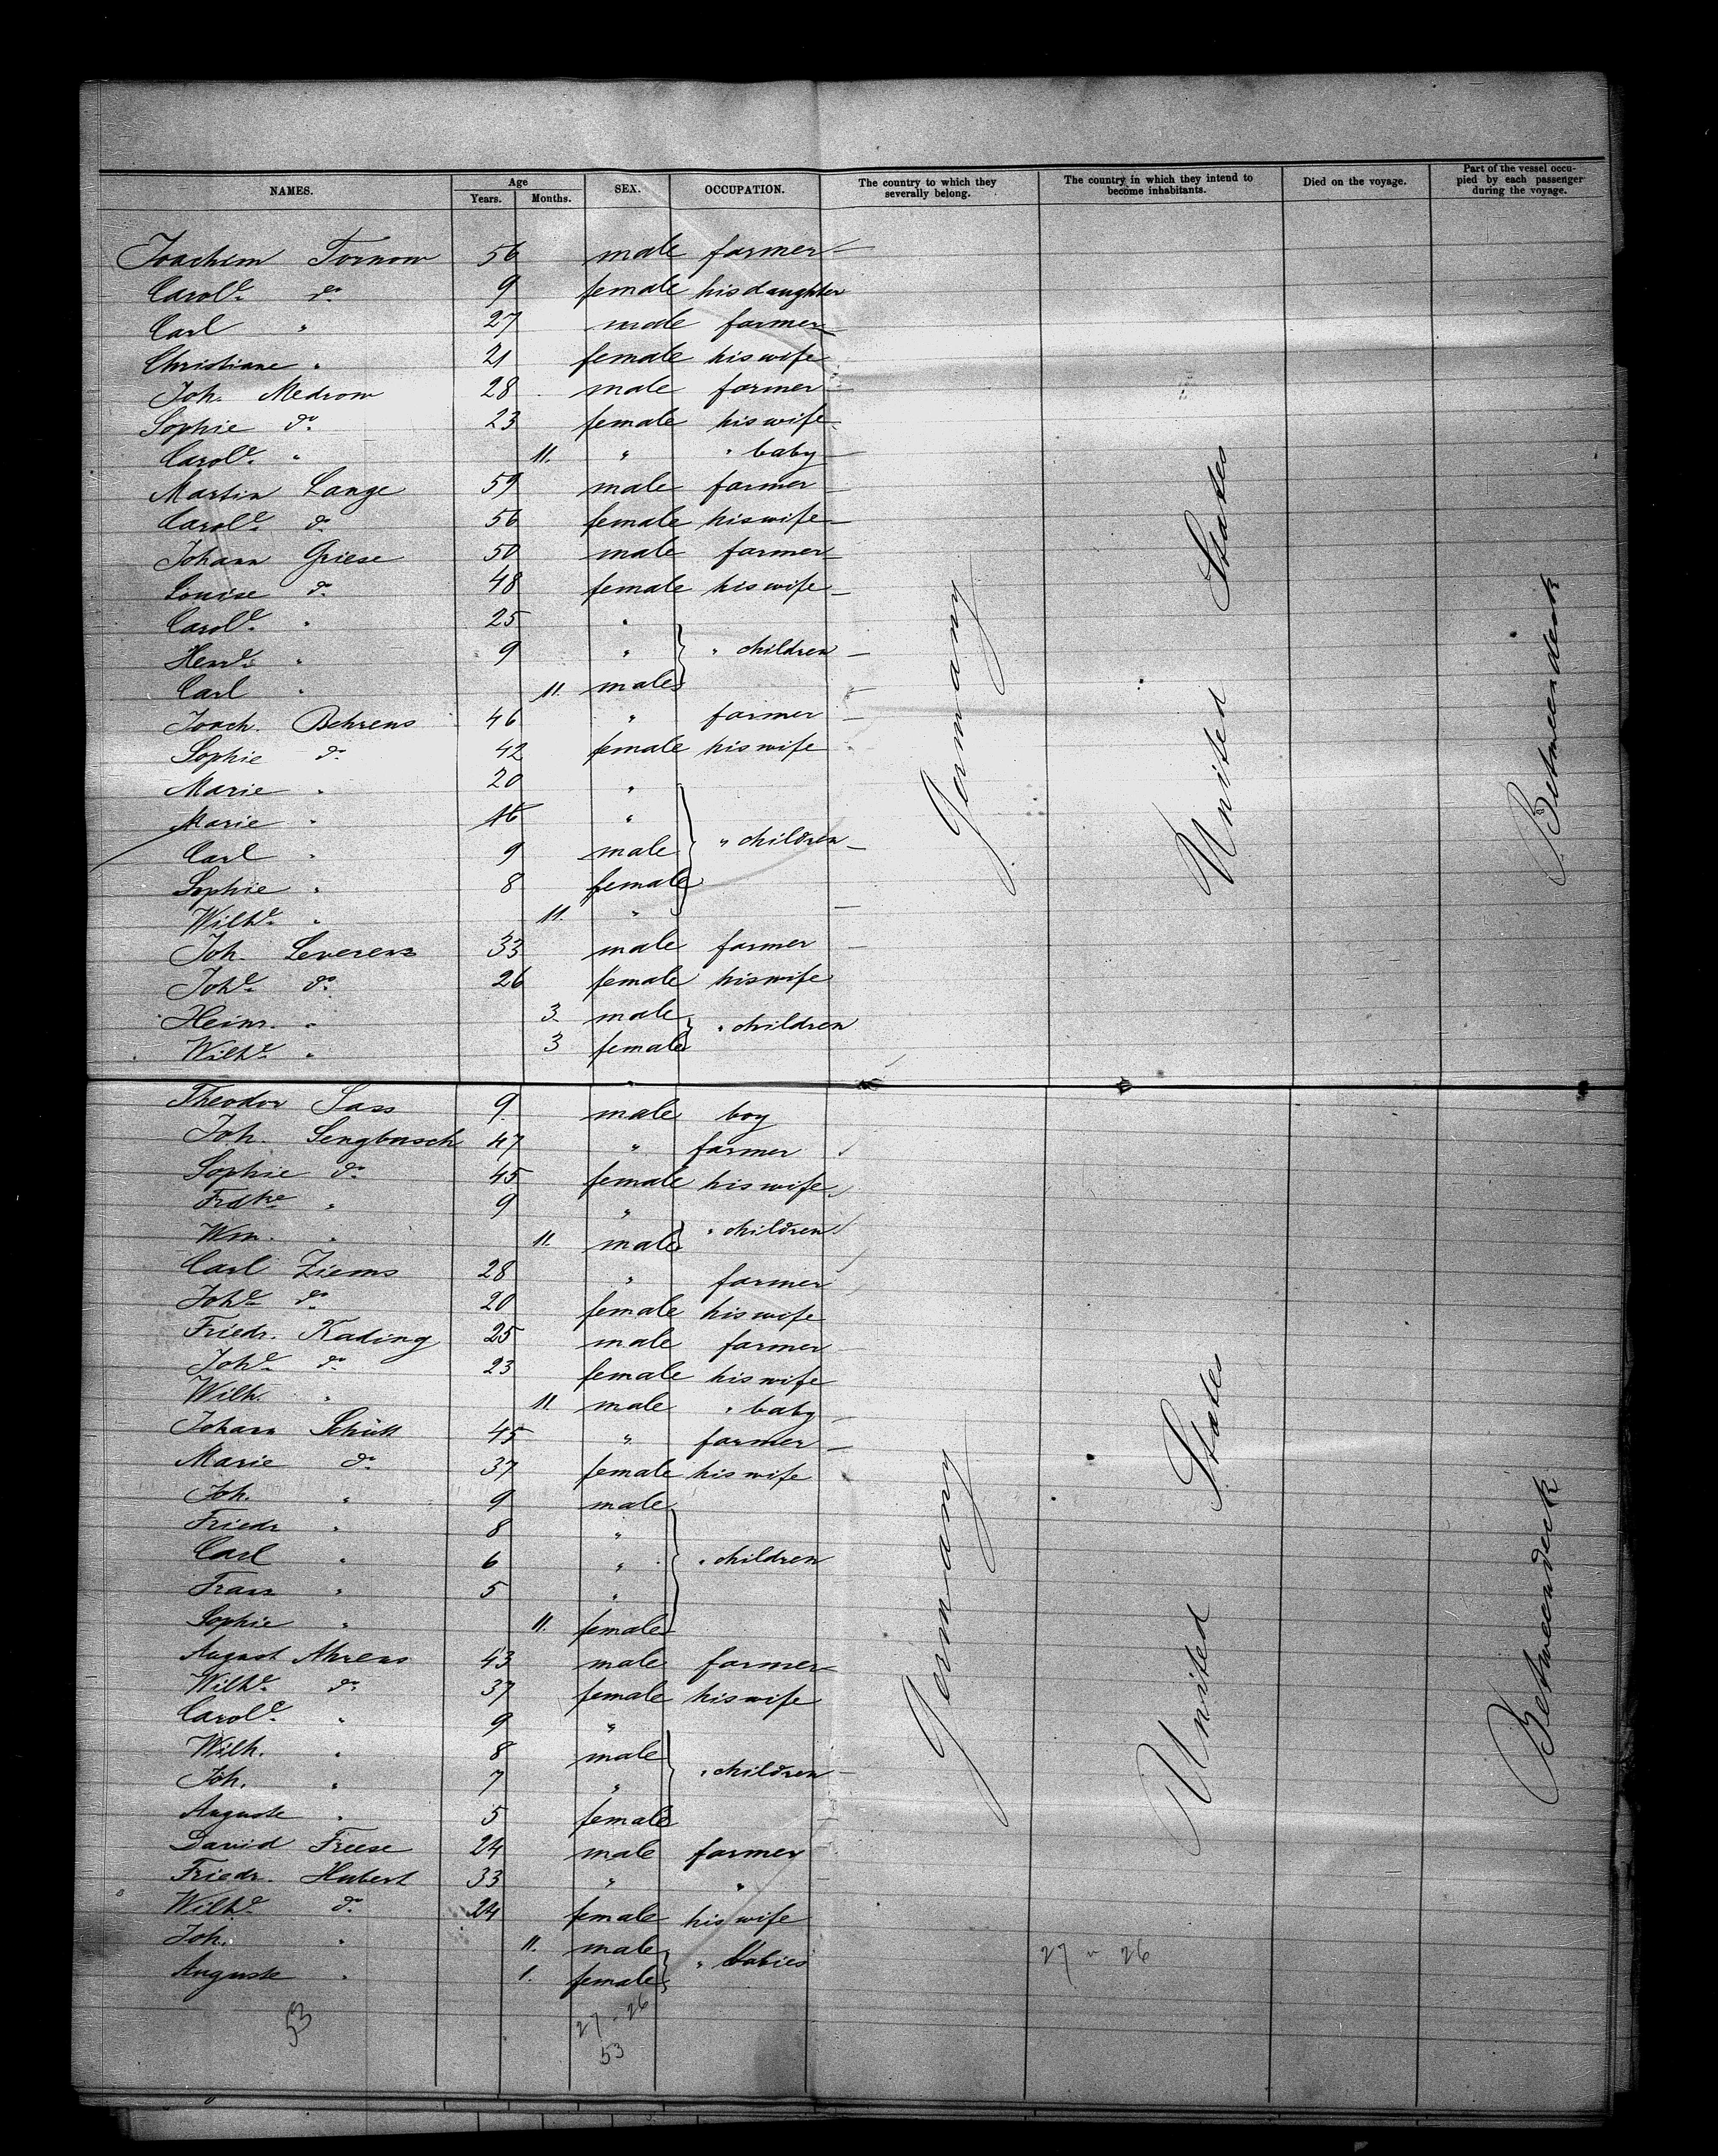 NAMES. Age Years. Months. SEX. OCCUPATION. The country to which they severally belong. The country in which they intend to become inhabitants. Died on the voyage. Part of the vessel occupied by each passenger during the voyage.
Joachim Tornow 56 male farmer
Carole. do. 9 female his daughter
Carl " 27 male farmer
Christiane " 21 female his wife
Joh. Medrow 28 male farmer
Sophie do. 23 female his wife
Carole. " 11. " " baby
Martin Lange 59 male farmer
Carole. do. 56 female his wife
Johann Griese 50 male farmer
Louise do. 48 female his wife
Carole. " 25 "
Henre. " 9 " " children
Carl " 11. male
Joach. Behrens 46 " farmer
Sophie do. 42 female his wife
Marie " 20 "
Marie " 16 "
Carl " 9 male " children
Sophie " 8 female
Wilhe. " 11. "
Joh. Leverenz 33 male farmer
Johe. do. 26 female his wife
Heinr. " 3. male " children
Wilhe. " 3 female
Germany
United States
Betweendeck
Theodor Sass 9. male boy
Joh. Sengbusch 47 " farmer
Sophie do. 45 female his wife
Frdke " 9 "
Wm. " 11. male " children
Carl Ziems 28 " farmer
Johe. do. 20 female his wife
Friedr. Kading 25 male farmer
Johe. do. 23 female his wife
Wilh. " 11. male " baby
Johann Schütt 45 " farmer
Marie do. 37 female his wife
Joh. " 9 male
Friedr " 8 "
Carl " 6 " " children
Franz " 5 "
Sophie " 11. female
August Ahrens 43 male farmer
Wilhe. do. 37 female his wife
Carole. " 9 "
Wilh. " 8 male
Joh. " 7 " " children
Auguste " 5 female
David Freese 24 male farmer
Friedr. Habert 33 " "
Wilhe. do. 24 female his wife
Joh. " 11. male " babies
Auguste " 1. female
Germany
United States
Betweendeck
27 " 26
53 27 - 26
53